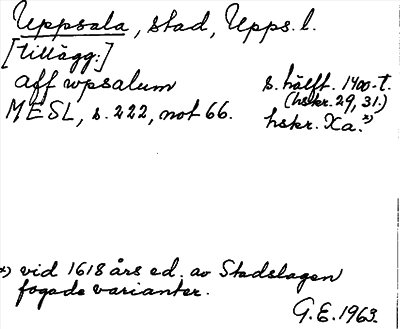 Uppsala, stad, Upps. l.
[tillägg:]
aff wpsalum s. hälft. 1400-t.
(hskr. 29, 31.)
MESL, s. 222, not 66. hskr. Xa.*)
*) vid 1618 års ed. av Stadslagen
fogade varianter.
G.E. 1963.